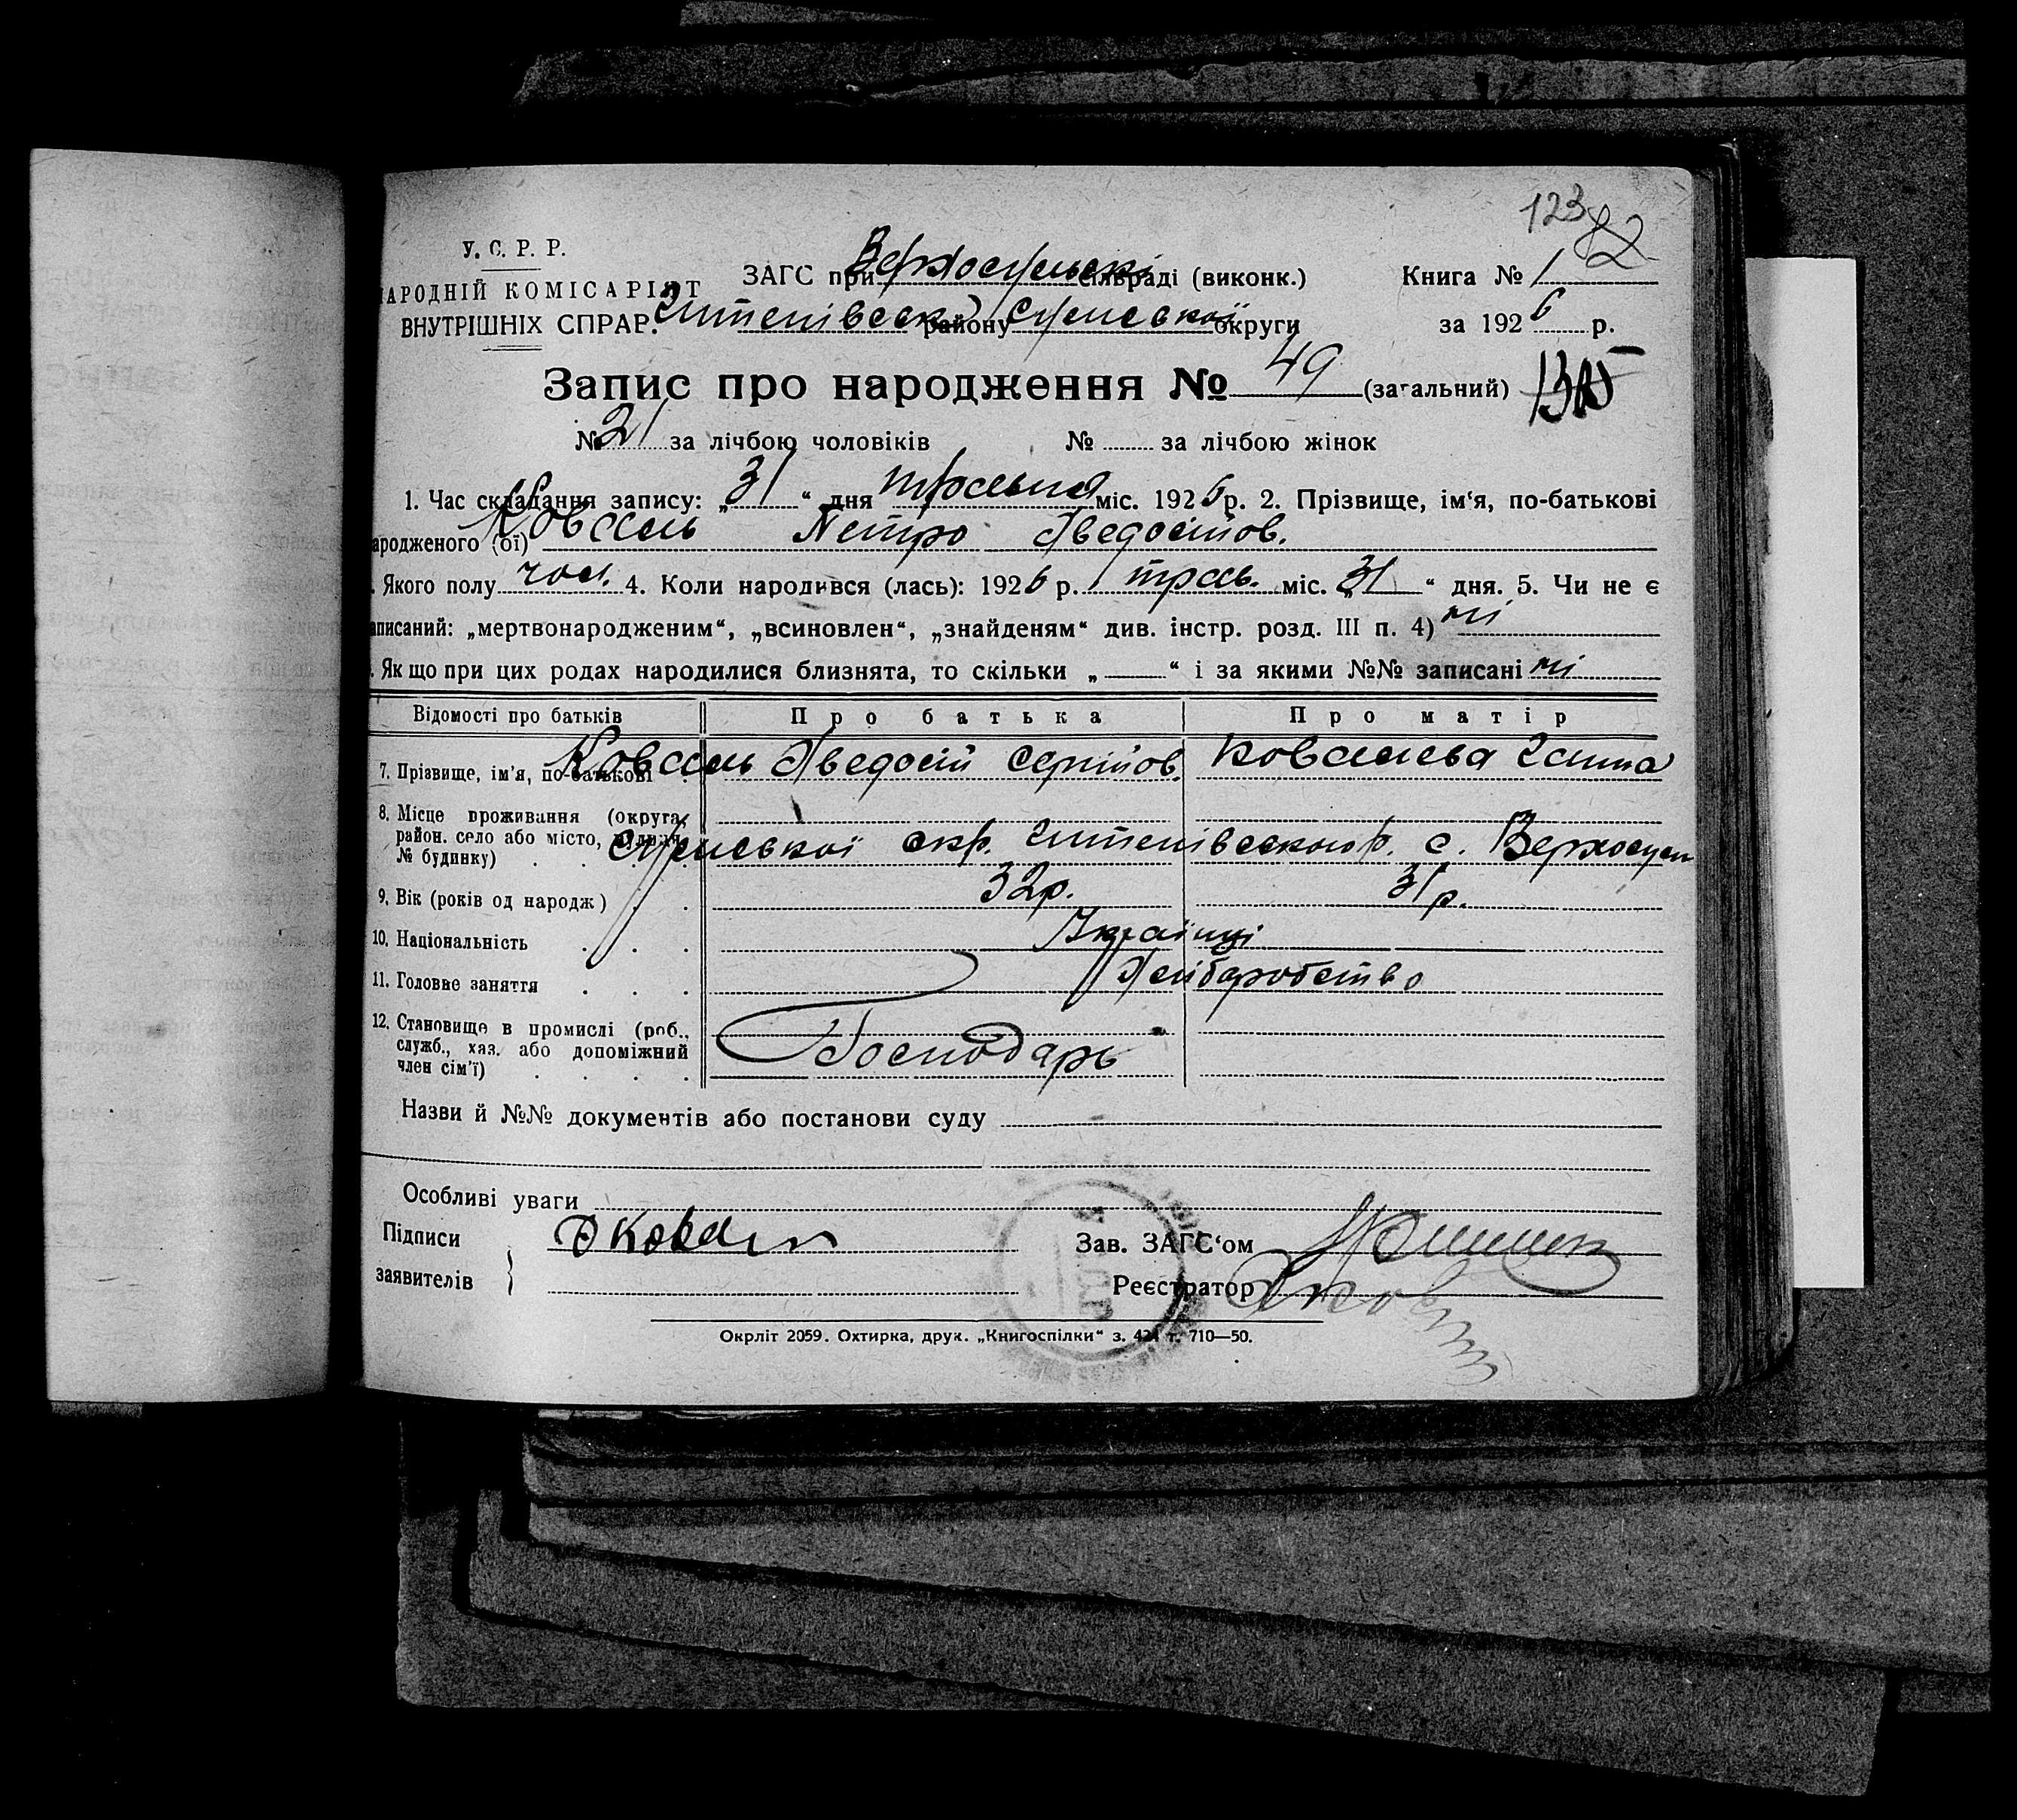 123 82
У. С. Р. Р.
НАРОДНІЙ КОМІСАРІЯТ
ВНУТРІШНІХ СПРАВ.
ЗАГС при Верхосульські сільраді (виконк.) Книга № 1
Штепівськ району Сумської округи за 1926 р.
Запис про народження № 49 (загальний)
№ 21 за лічбою чоловіків № за лічбою жінок
1. Час складання запису: „31“ дня травня міс. 1926 р. 2. Прізвище, ім‘я, по-батькові
ародженого (ої) Коваль Петро Хведосійов.
. Якого полу чол. 4. Коли народився (лась): 1926 р. трав. міс. „31“ дня. 5. Чи не є
аписаний: „мертвонародженим“, „всиновлен“, „знайденям“ див. інстр. розд. III п. 4) ні
. Якщо при цих родах народилися близнята, то скільки „ “ і за якими №№ записані ні
Відомості про батьків Про батька Про матір
7. Прізвище, ім‘я, по-батькові Коваль Хведосій Сергійов. Ковалева Ганна
8. Місце проживання (округа,
район. село або місто, вулиця,
№ будинку) Сумської окр. Штепівского р. с. Верхосул
9. Вік (років од народж) 32 р. 31 р.
10. Національність Українці
11. Головне заняття Хліборобство
12. Становище в промислі (роб.,
служб., хаз. або допоміжний
член сім‘ї) Господарь
Назви й №№ документів або постанови суду
Особливі уваги
Підписи Ф Коваль
заявителів
Зав. ЗАГС‘ом
Реєстратор
Окрліт 2059. Охтирка, друк. „Книгоспілки“ з. 424 т. 710—50.